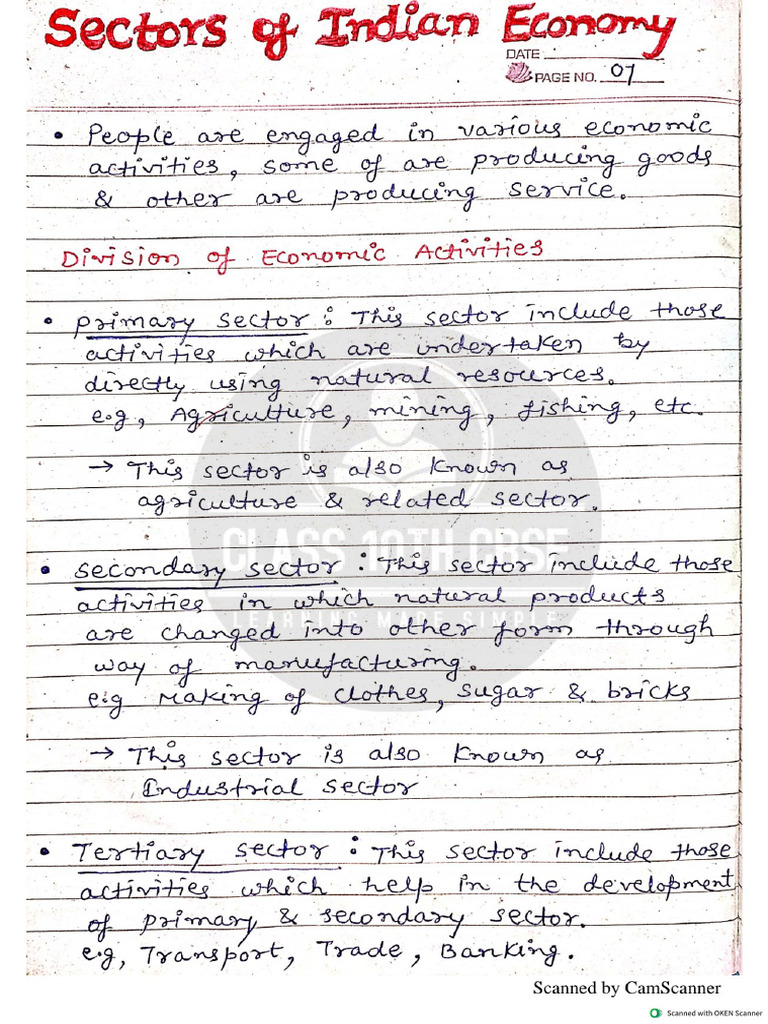 Sectors of Indian Economy
DATE
PAGE NO. 01
• People are engaged in various economic
activities, some of are producing goods
& other are producing service.
Division of Economic Activities
• Primary sector : This sector include those
activities which are undertaken by
directly using natural resources.
e.g, Agriculture, mining, fishing, etc.
→ This sector is also known as
agriculture & related sector.
CLASS 10TH CBSE
• Secondary sector : This sector include those
activities in which natural products
LEARNING MADE SIMPLE
are changed into other form through
way of manufacturing.
e.g Making of clothes, sugar & bricks
→ This sector is also known as
Industrial sector
• Tertiary sector : This sector include those
activities which help in the development
of primary & secondary sector.
e.g, Transport, Trade, Banking.
Scanned by CamScanner
Scanned with OKEN Scanner